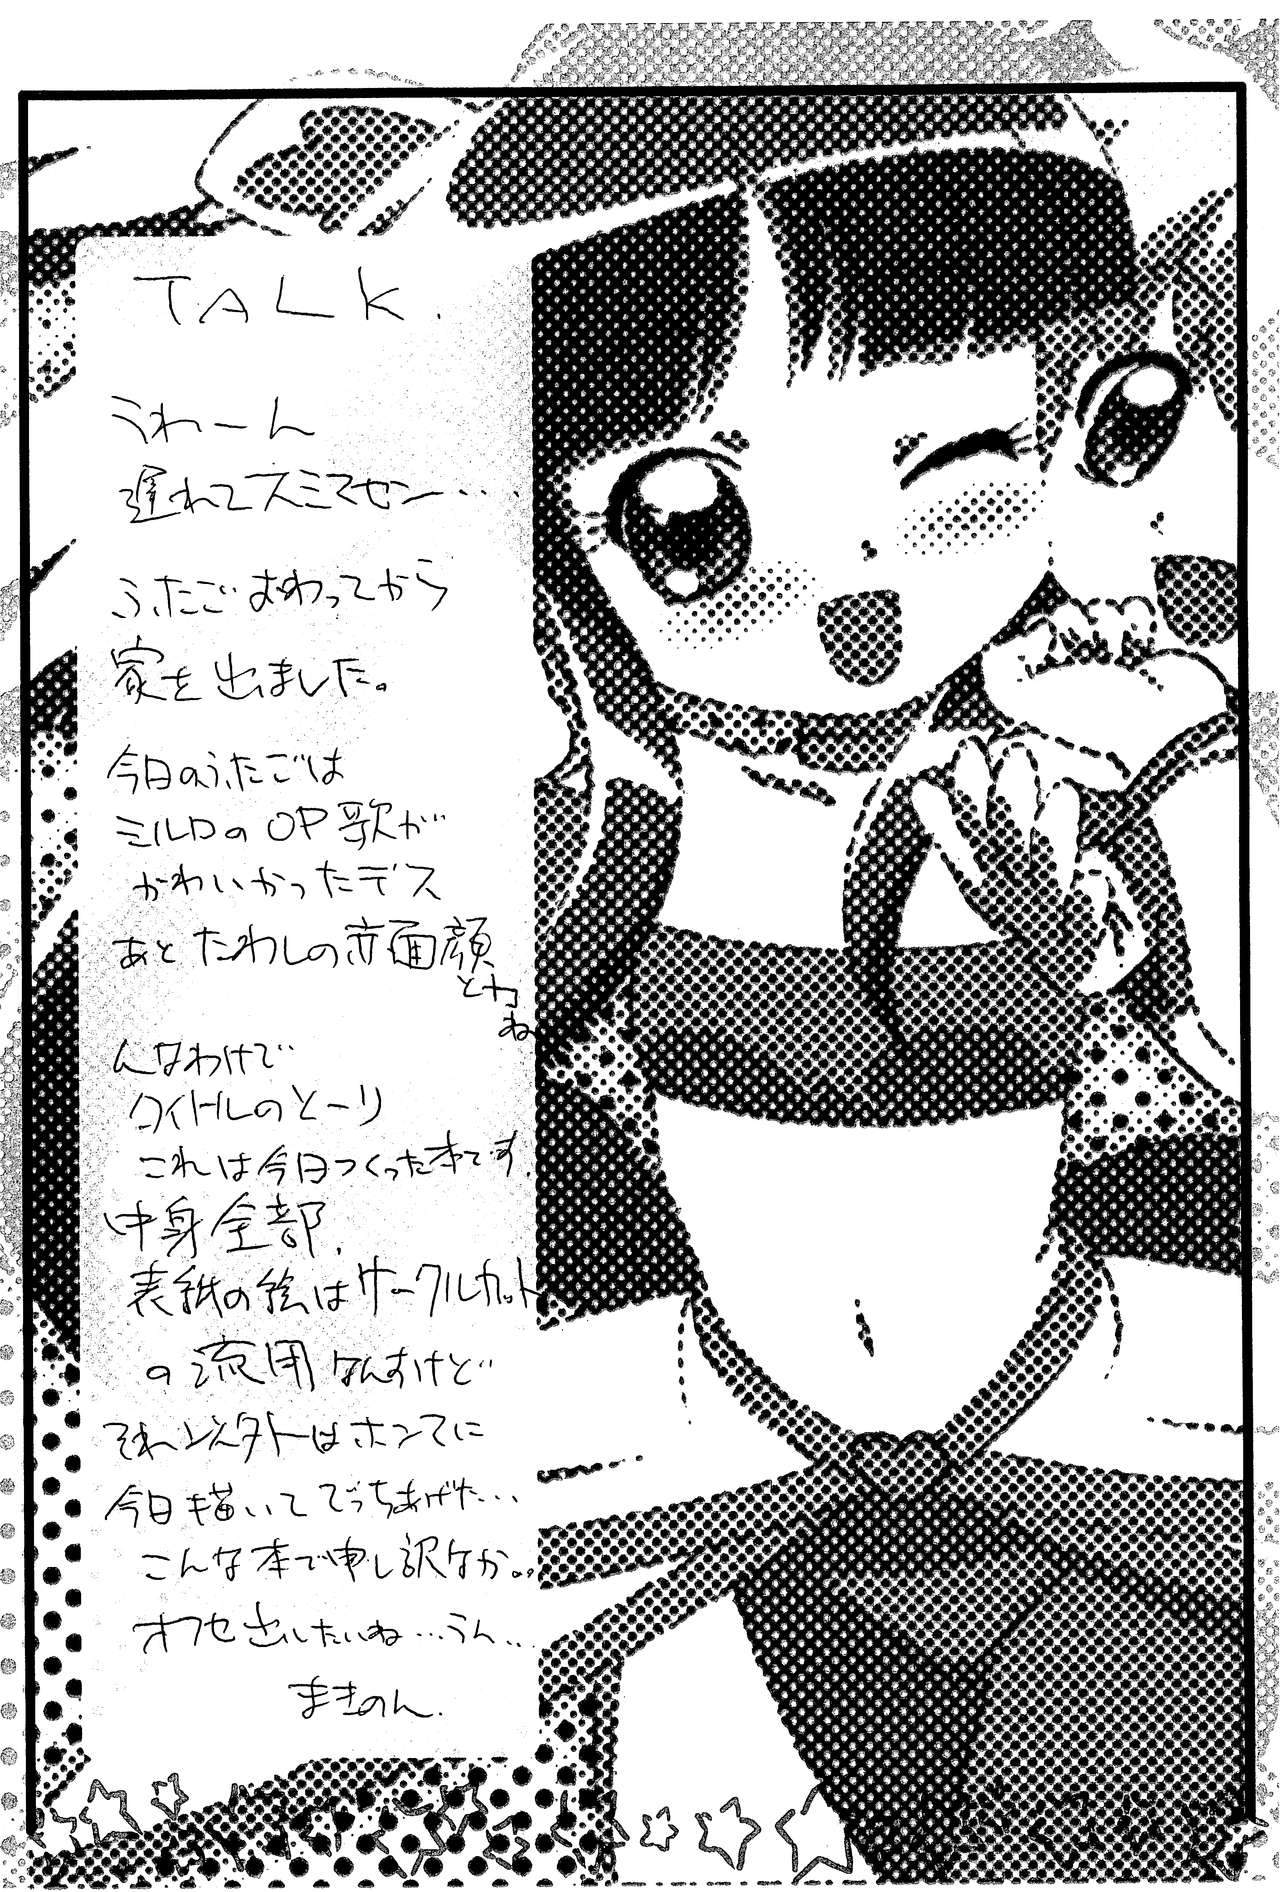 TALK.
うわーん
遅れてスミマセン…
ふたごおわってから
家を出ました。
今日のふたごは
ミルロのOP歌が
かわいかったデス
あと たわしの変面顔
とかね
んなわけで
タイトルのとーり
これは今日つくった本です.
中身全部.
表紙の絵はサークルカット
の流用なんすけど
それ以外はホントに
今日描いてでっちあげた…
こんな本で申し訳なか。。
オフセ出したいね…うん…
まきのん.